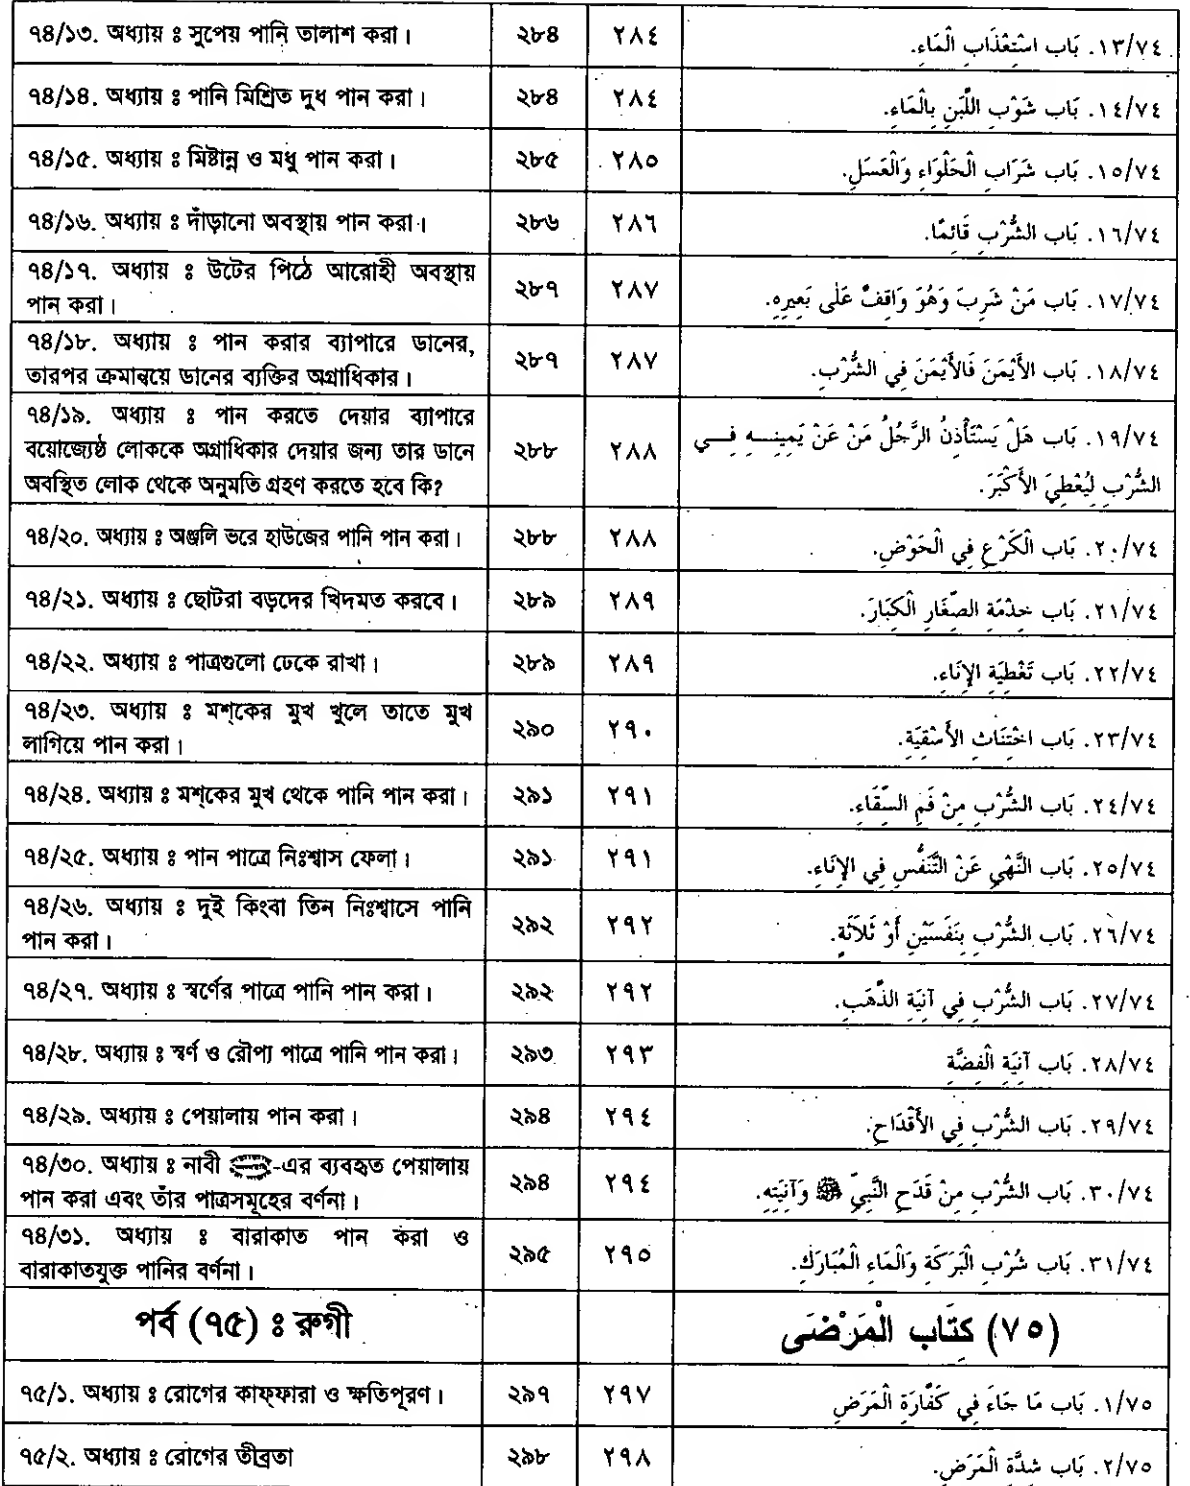 ৭৪/১৩. অধ্যায় ঃ সুপেয় পানি তালাশ করা। ২৮৪ ٢٨٤ ١٣/٧٤. بَاب اسْتِعْذَابِ الْمَاءِ.
৭৪/১৪. অধ্যায় ঃ পানি মিশ্রিত দুধ পান করা। ২৮৪ ٢٨٤ ١٤/٧٤. بَاب شَوْبِ اللَّبَنِ بِالْمَاءِ.
৭৪/১৫. অধ্যায় ঃ মিষ্টান্ন ও মধু পান করা। ২৮৫ ٢٨٥ ١٥/٧٤. بَاب شَرَابِ الْحَلْوَاءِ وَالْعَسَلِ.
৭৪/১৬. অধ্যায় ঃ দাঁড়ানো অবস্থায় পান করা। ২৮৬ ٢٨٦ ١٦/٧٤. بَاب الشُّرْبِ قَائِمًا.
৭৪/১৭. অধ্যায় ঃ উটের পিঠে আরোহী অবস্থায়
পান করা। ২৮৭ ٢٨٧ ١٧/٧٤. بَاب مَنْ شَرِبَ وَهُوَ وَاقِفٌ عَلَى بَعِيرِهِ.
৭৪/১৮. অধ্যায় ঃ পান করার ব্যাপারে ডানের,
তারপর ক্রমান্বয়ে ডানের ব্যক্তির অগ্রাধিকার। ২৮৭ ٢٨٧ ١٨/٧٤. بَاب الأَيْمَنَ فَالأَيْمَنَ فِي الشُّرْبِ.
৭৪/১৯. অধ্যায় ঃ পান করতে দেয়ার ব্যাপারে
বয়োজ্যেষ্ঠ লোককে অগ্রাধিকার দেয়ার জন্য তার ডানে
অবস্থিত লোক থেকে অনুমতি গ্রহণ করতে হবে কি? ২৮৮ ٢٨٨ ١٩/٧٤. بَاب هَلْ يَسْتَأْذِنُ الرَّجُلُ مَنْ عَنْ يَمِينِـــهِ فِـــي
الشُّرْبِ لِيُعْطِيَ الأَكْبَرَ.
৭৪/২০. অধ্যায় ঃ অঞ্জলি ভরে হাউজের পানি পান করা। ২৮৮ ٢٨٨ ٢٠/٧٤. بَاب الْكَرْعِ فِي الْحَوْضِ.
৭৪/২১. অধ্যায় ঃ ছোটরা বড়দের খিদমত করবে। ২৮৯ ٢٨٩ ٢١/٧٤. بَاب خِدْمَةِ الصِّغَارِ الْكِبَارَ.
৭৪/২২. অধ্যায় ঃ পাত্রগুলো ঢেকে রাখা। ২৮৯ ٢٨٩ ٢٢/٧٤. بَاب تَغْطِيَةِ الإِنَاءِ.
৭৪/২৩. অধ্যায় ঃ মশ্‌কের মুখ খুলে তাতে মুখ
লাগিয়ে পান করা। ২৯০ ٢٩٠ ٢٣/٧٤. بَاب اخْتِنَاثِ الأَسْقِيَةِ.
৭৪/২৪. অধ্যায় ঃ মশ্‌কের মুখ থেকে পানি পান করা। ২৯১ ٢٩١ ٢٤/٧٤. بَاب الشُّرْبِ مِنْ فَمِ السِّقَاءِ.
৭৪/২৫. অধ্যায় ঃ পান পাত্রে নিঃশ্বাস ফেলা। ২৯১ ٢٩١ ٢٥/٧٤. بَاب النَّهْيِ عَنْ التَّنَفُّسِ فِي الإِنَاءِ.
৭৪/২৬. অধ্যায় ঃ দুই কিংবা তিন নিঃশ্বাসে পানি
পান করা। ২৯২ ٢٩٢ ٢٦/٧٤. بَاب الشُّرْبِ بِنَفَسَيْنِ أَوْ ثَلاَثَةٍ.
৭৪/২৭. অধ্যায় ঃ স্বর্ণের পাত্রে পানি পান করা। ২৯২ ٢٩٢ ٢٧/٧٤. بَاب الشُّرْبِ فِي آنِيَةِ الذَّهَبِ.
৭৪/২৮. অধ্যায় ঃ স্বর্ণ ও রৌপ্য পাত্রে পানি পান করা। ২৯৩ ٢٩٣ ٢٨/٧٤. بَاب آنِيَةِ الْفِضَّةِ
৭৪/২৯. অধ্যায় ঃ পেয়ালায় পান করা। ২৯৪ ٢٩٤ ٢٩/٧٤. بَاب الشُّرْبِ فِي الأَقْدَاحِ.
৭৪/৩০. অধ্যায় ঃ নাবী ﷺ-এর ব্যবহৃত পেয়ালায়
পান করা এবং তাঁর পাত্রসমূহের বর্ণনা। ২৯৪ ٢٩٤ ٣٠/٧٤. بَاب الشُّرْبِ مِنْ قَدَحِ النَّبِيِّ ﷺ وَآنِيَتِهِ.
৭৪/৩১. অধ্যায় ঃ বারাকাত পান করা ও
বারাকাতযুক্ত পানির বর্ণনা। ২৯৫ ٢٩٥ ٣١/٧٤. بَاب شُرْبِ الْبَرَكَةِ وَالْمَاءِ الْمُبَارَكِ.
পর্ব (৭৫) ঃ রুগী (٧٥) كِتَاب الْمَرْضَى
৭৫/১. অধ্যায় ঃ রোগের কাফ্‌ফারা ও ক্ষতিপূরণ। ২৯৭ ٢٩٧ ١/٧٥. بَاب مَا جَاءَ فِي كَفَّارَةِ الْمَرَضِ
৭৫/২. অধ্যায় ঃ রোগের তীব্রতা ২৯৮ ٢٩٨ ٢/٧٥. بَاب شِدَّةِ الْمَرَضِ.